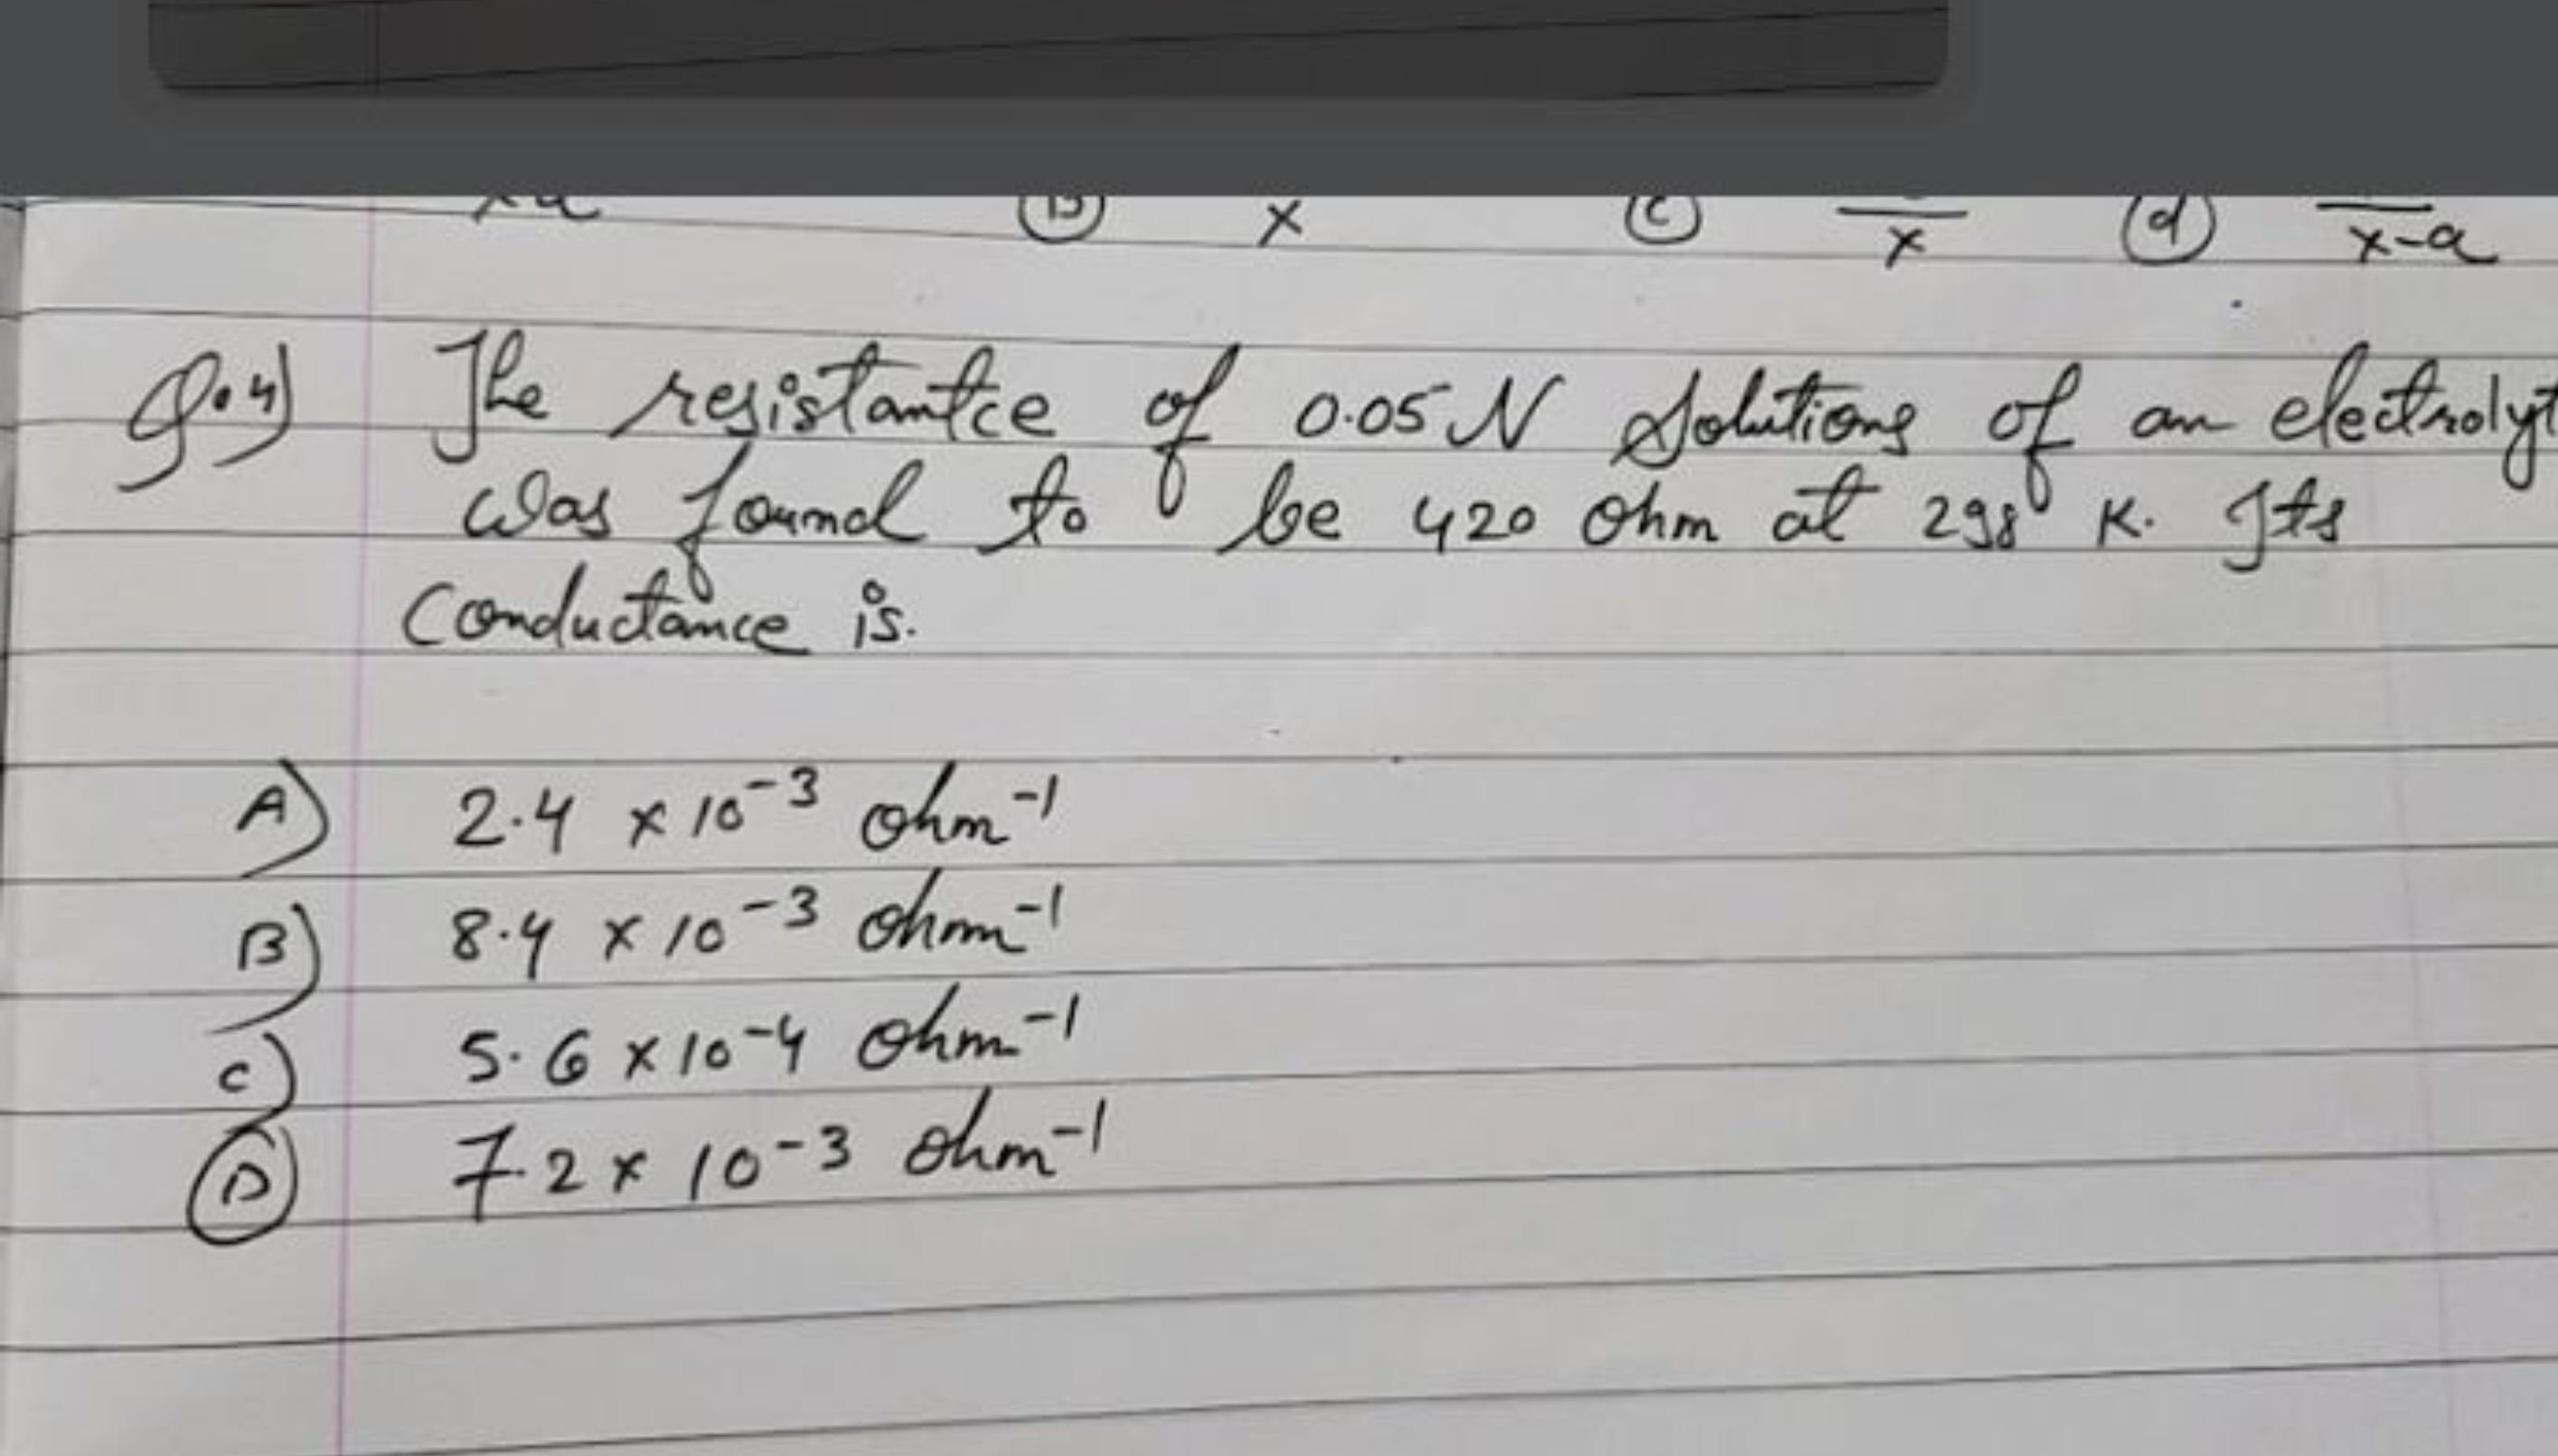 x-a (B) x (c) x (d) x-a
Q.4) The resistantce of 0.05 N Solutions of an electrolyt
was found to be 420 ohm at 298 K. Its
Conductance is.
A) 2.4 x 10-3 ohm-1
B) 8.4 x 10-3 ohm-1
c) 5.6 x 10-4 ohm-1
(D) 7.2 x 10-3 ohm-1